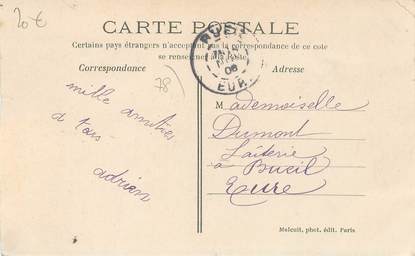 20 €
CARTE POSTALE
Certains pays étrangers n'acceptent pas la correspondance de ce côté
se renseigner à la Poste
Correspondance
Adresse
78
EUR
08
mille amitiés
à tous
adrien
Mademoiselle
Dumont
Laiterie
à Bueil
Eure
Malcuit, phot. édit. Paris